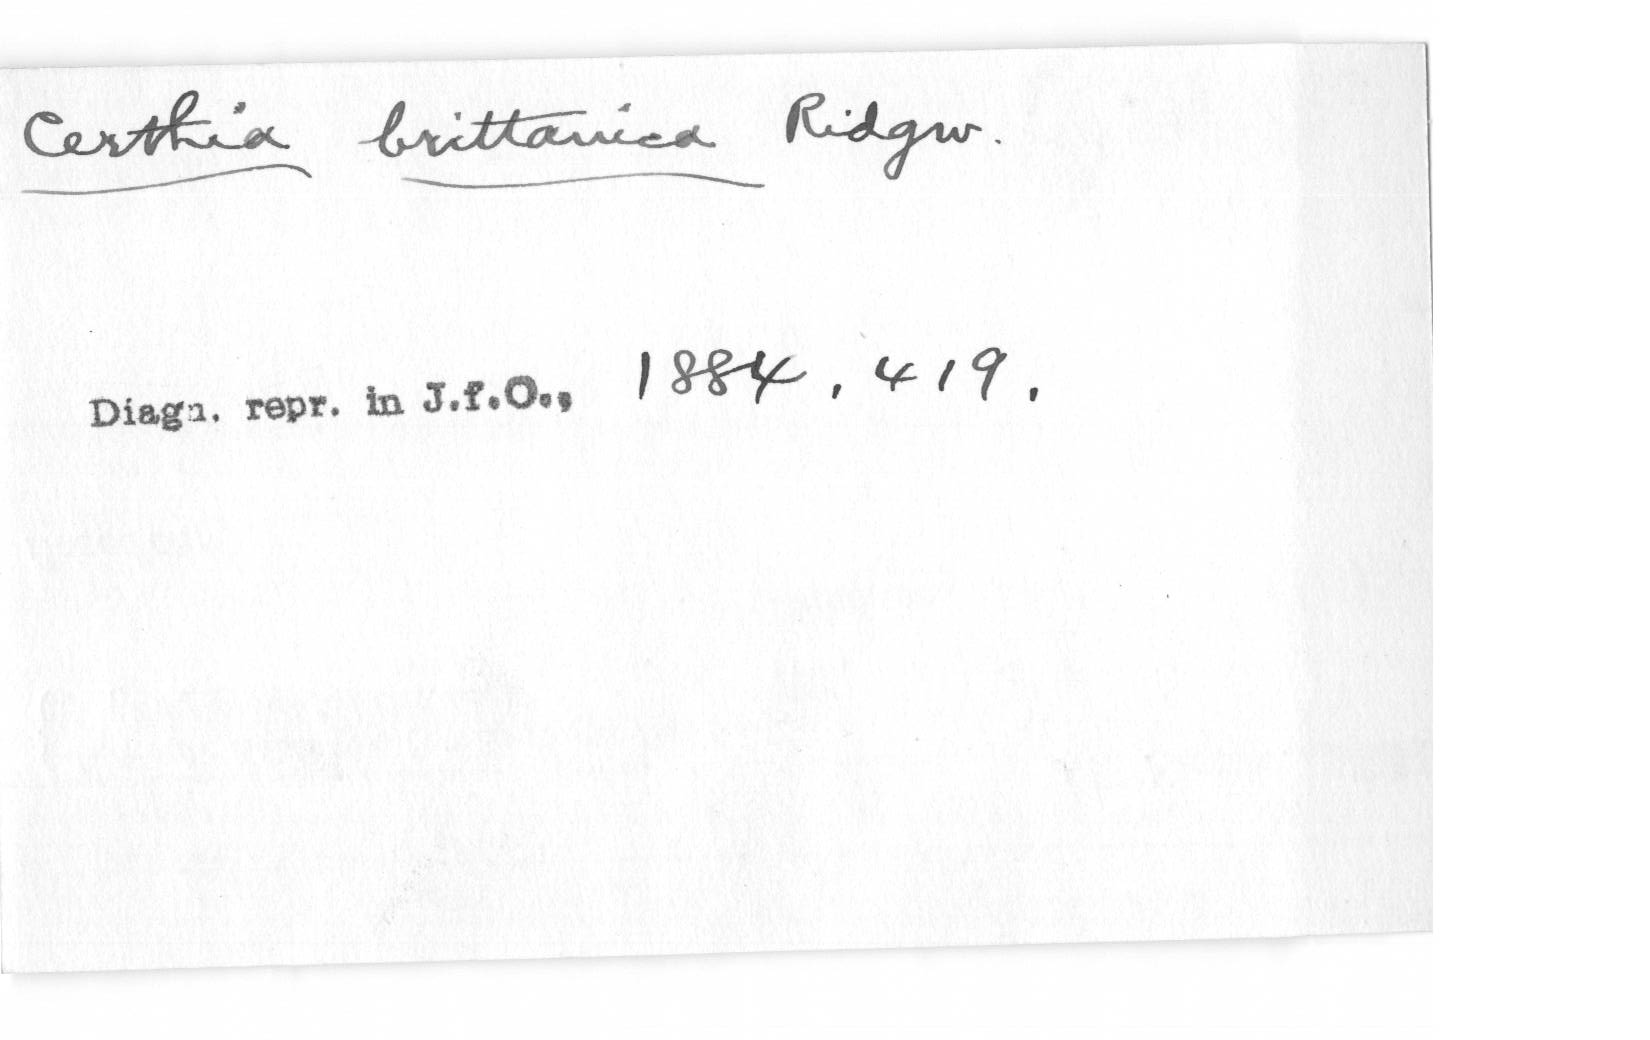 Certhia brittanica Ridgw.
Diagn. repr. in J.f.O., 1884, 419.